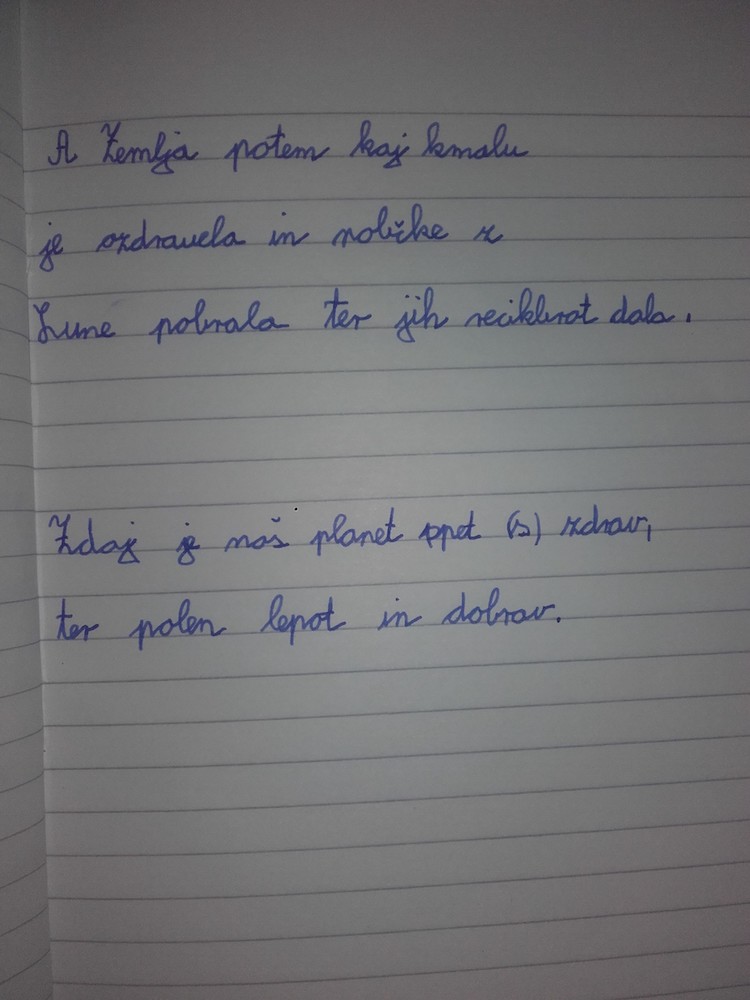 A Zemlja potem kaj kmalu
je ozdravela in robčke z
Lune pobrala ter jih reciklirat dala.
Zdaj je naš planet opet (s) zdrav,
ter polen lepot in dobrav.